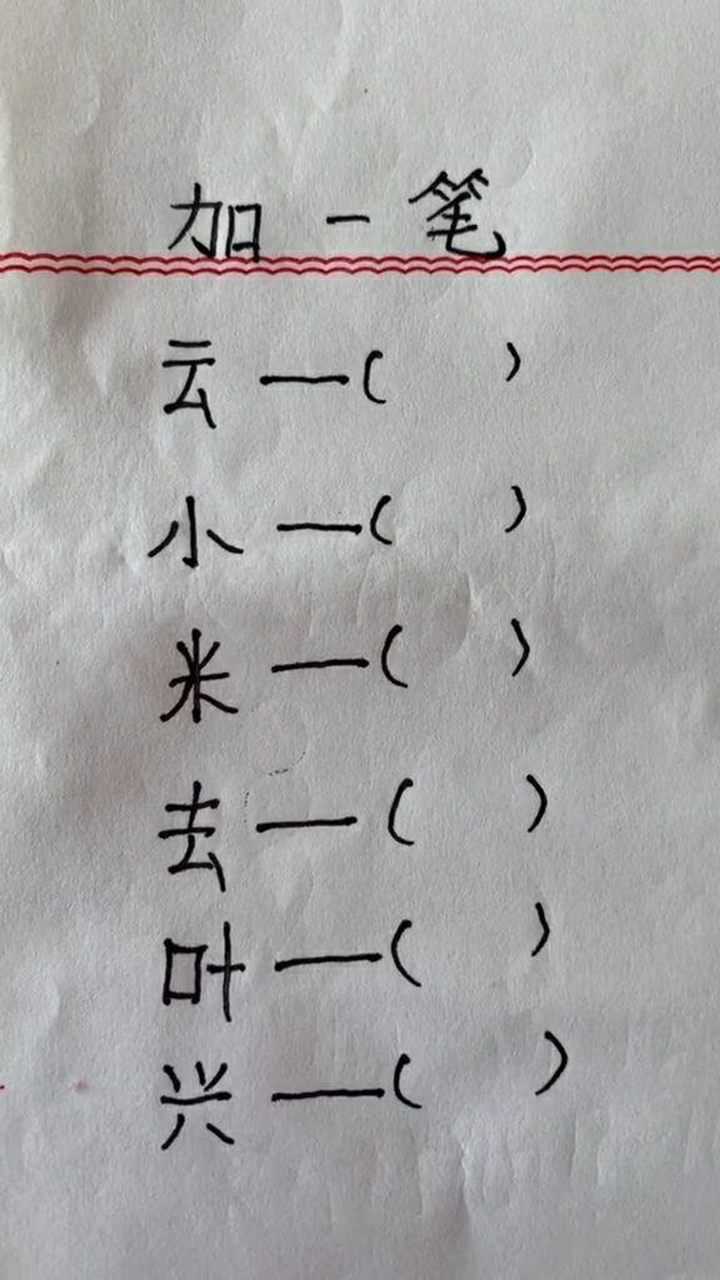 加一笔
云—( )
小—( )
米—( )
去—( )
叶—( )
兴—( )